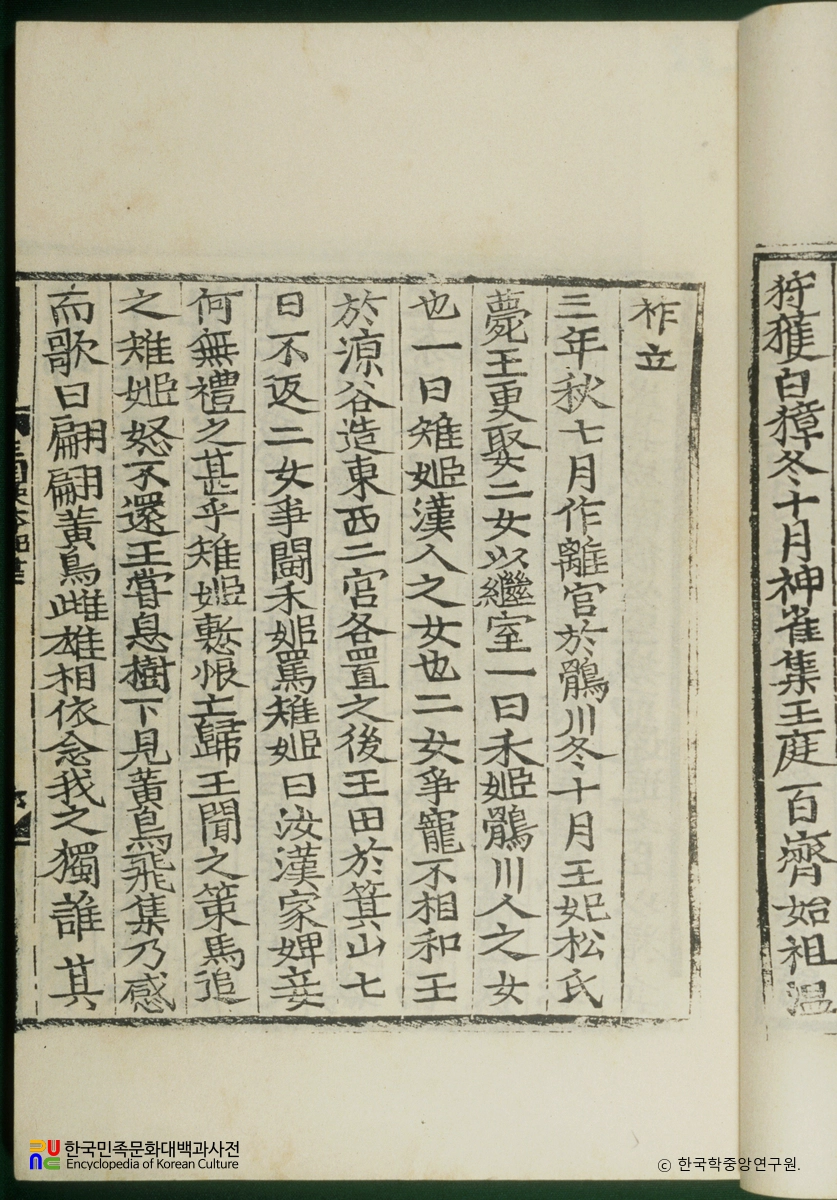 狩獲白獐冬十月神雀集王庭百濟始祖溫
祚立
三年秋七月作離宮於鶻川冬十月王妃松氏
薨王更娶二女以繼室一曰禾姬鶻川人之女
也一曰雉姬漢人之女也二女爭寵不相和王
於涼谷造東西二宮各置之後王田於箕山七
日不返二女爭鬪禾姬罵雉姬曰汝漢家婢妾
何無禮之甚乎雉姬慙恨亡歸王聞之策馬追
之雉姬怒不還王嘗息樹下見黃鳥飛集乃感
而歌曰翩翩黃鳥雌雄相依念我之獨誰其
한국민족문화대백과사전
Encyclopedia of Korean Culture
ⓒ 한국학중앙연구원.